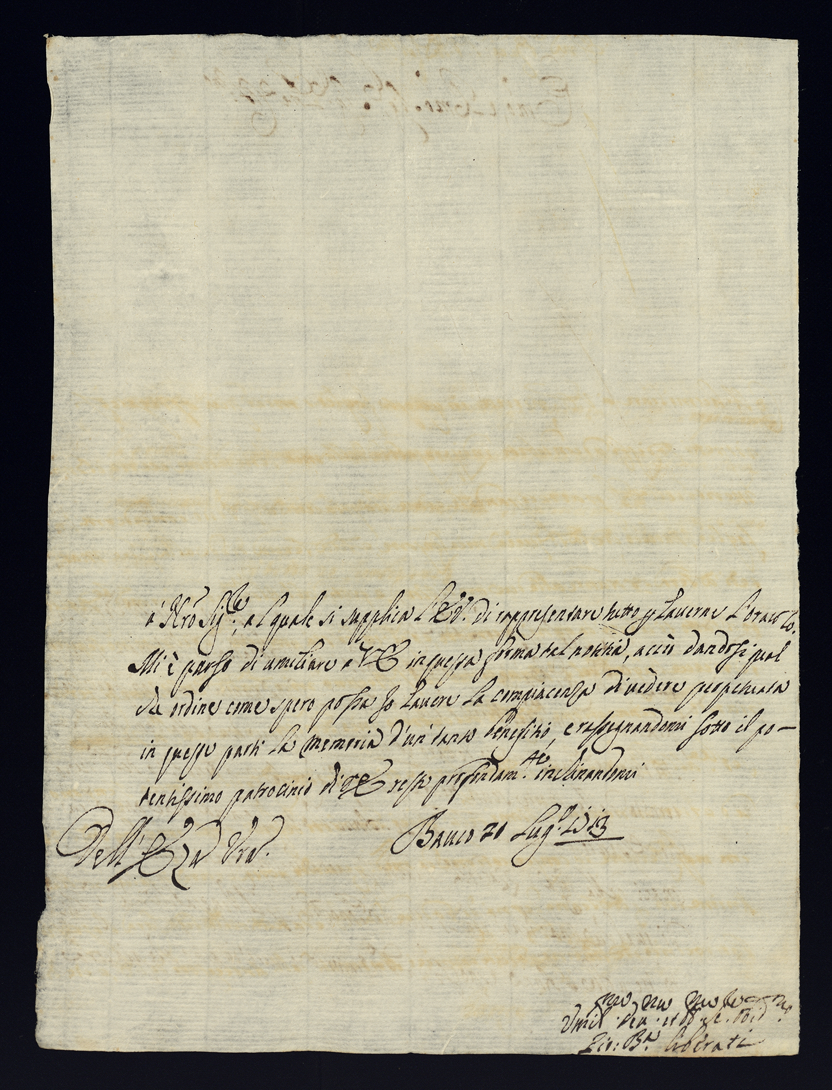 à Nrõ Sig.re, al quale si supplica l'E.V. di rappresentare tutto p hauerne l'oraco lo.
Mi è parso di umiliare a VE in questa forma tal notitia, acciò dandosi qual
che ordine come spero possa Io hauere la compiacenza di vedere perpetuata
in queste parti la memoria d'un tanto benefitio, e rassegnandomi sotto il po-
tentissimo patrocinio di VE resto profondam.te inclinandomi
Dell' E. Vrã.
Bauco 21 Lug.o 1713
Vmil.mo deu.mo et
Gio: B.ta Liberati